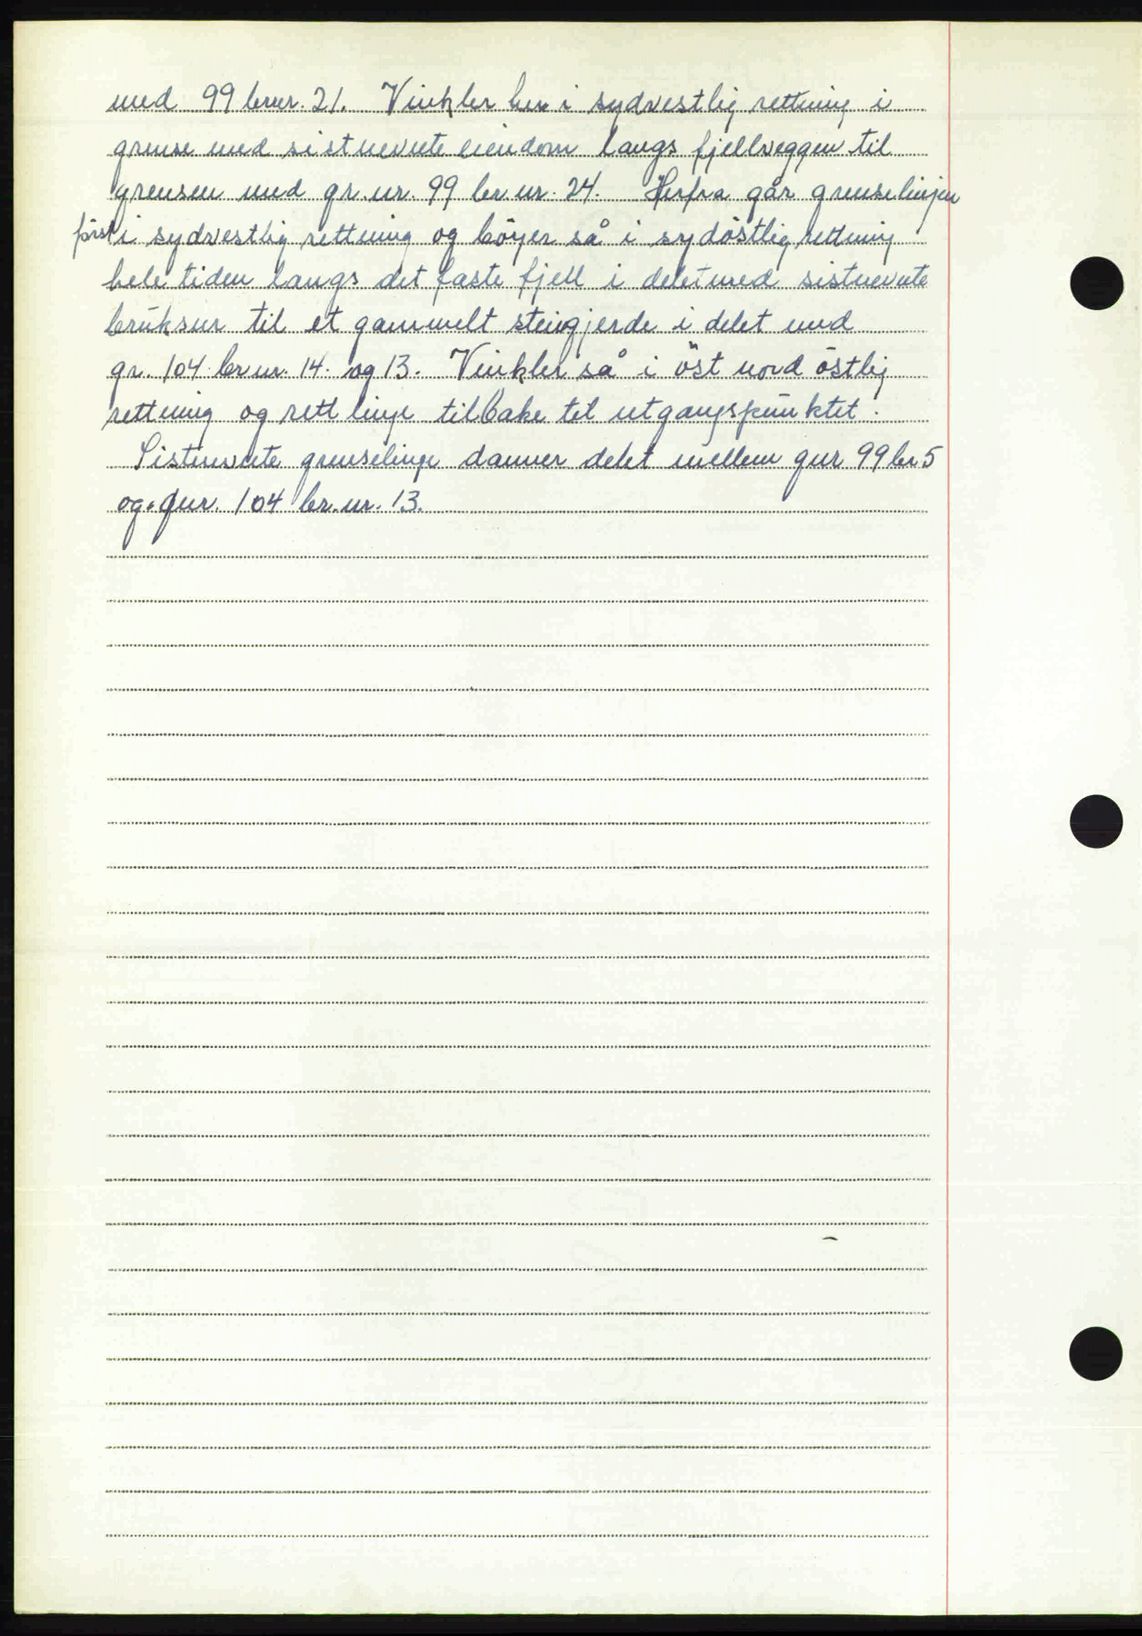 med 99 br.nr. 21. Vinkler her i sydvestlig rettning i
grense med sistnevnte eiendom langs fjellveggen til
grensen med gr.nr. 99 br.nr. 24. Herfra går grenselinjen
först i sydvestlig rettning og böyer så i sydöstlig rettning
hele tiden langs det faste fjell i delet med sistnevnte
bruksnr til et gammelt steingjerde i delet med
gr. 104 br.nr. 14. og 13. Vinkler så i öst nord östlig
rettning og rett linje tilbake til utgangspunktet.
Sistnevnte grenselinje danner delet mellem gnr 99 br 5
og gnr. 104 br.nr. 13.